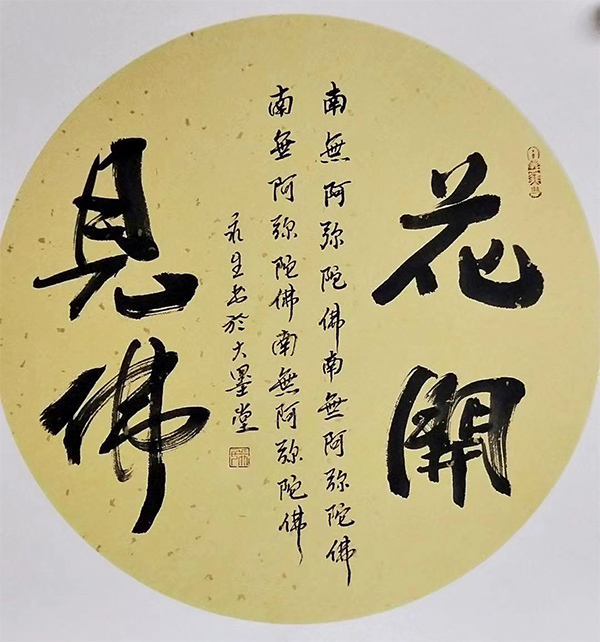 花開
南無阿弥陀佛南無阿弥陀佛
南無阿弥陀佛南無阿弥陀佛
生书於大墨堂
見佛